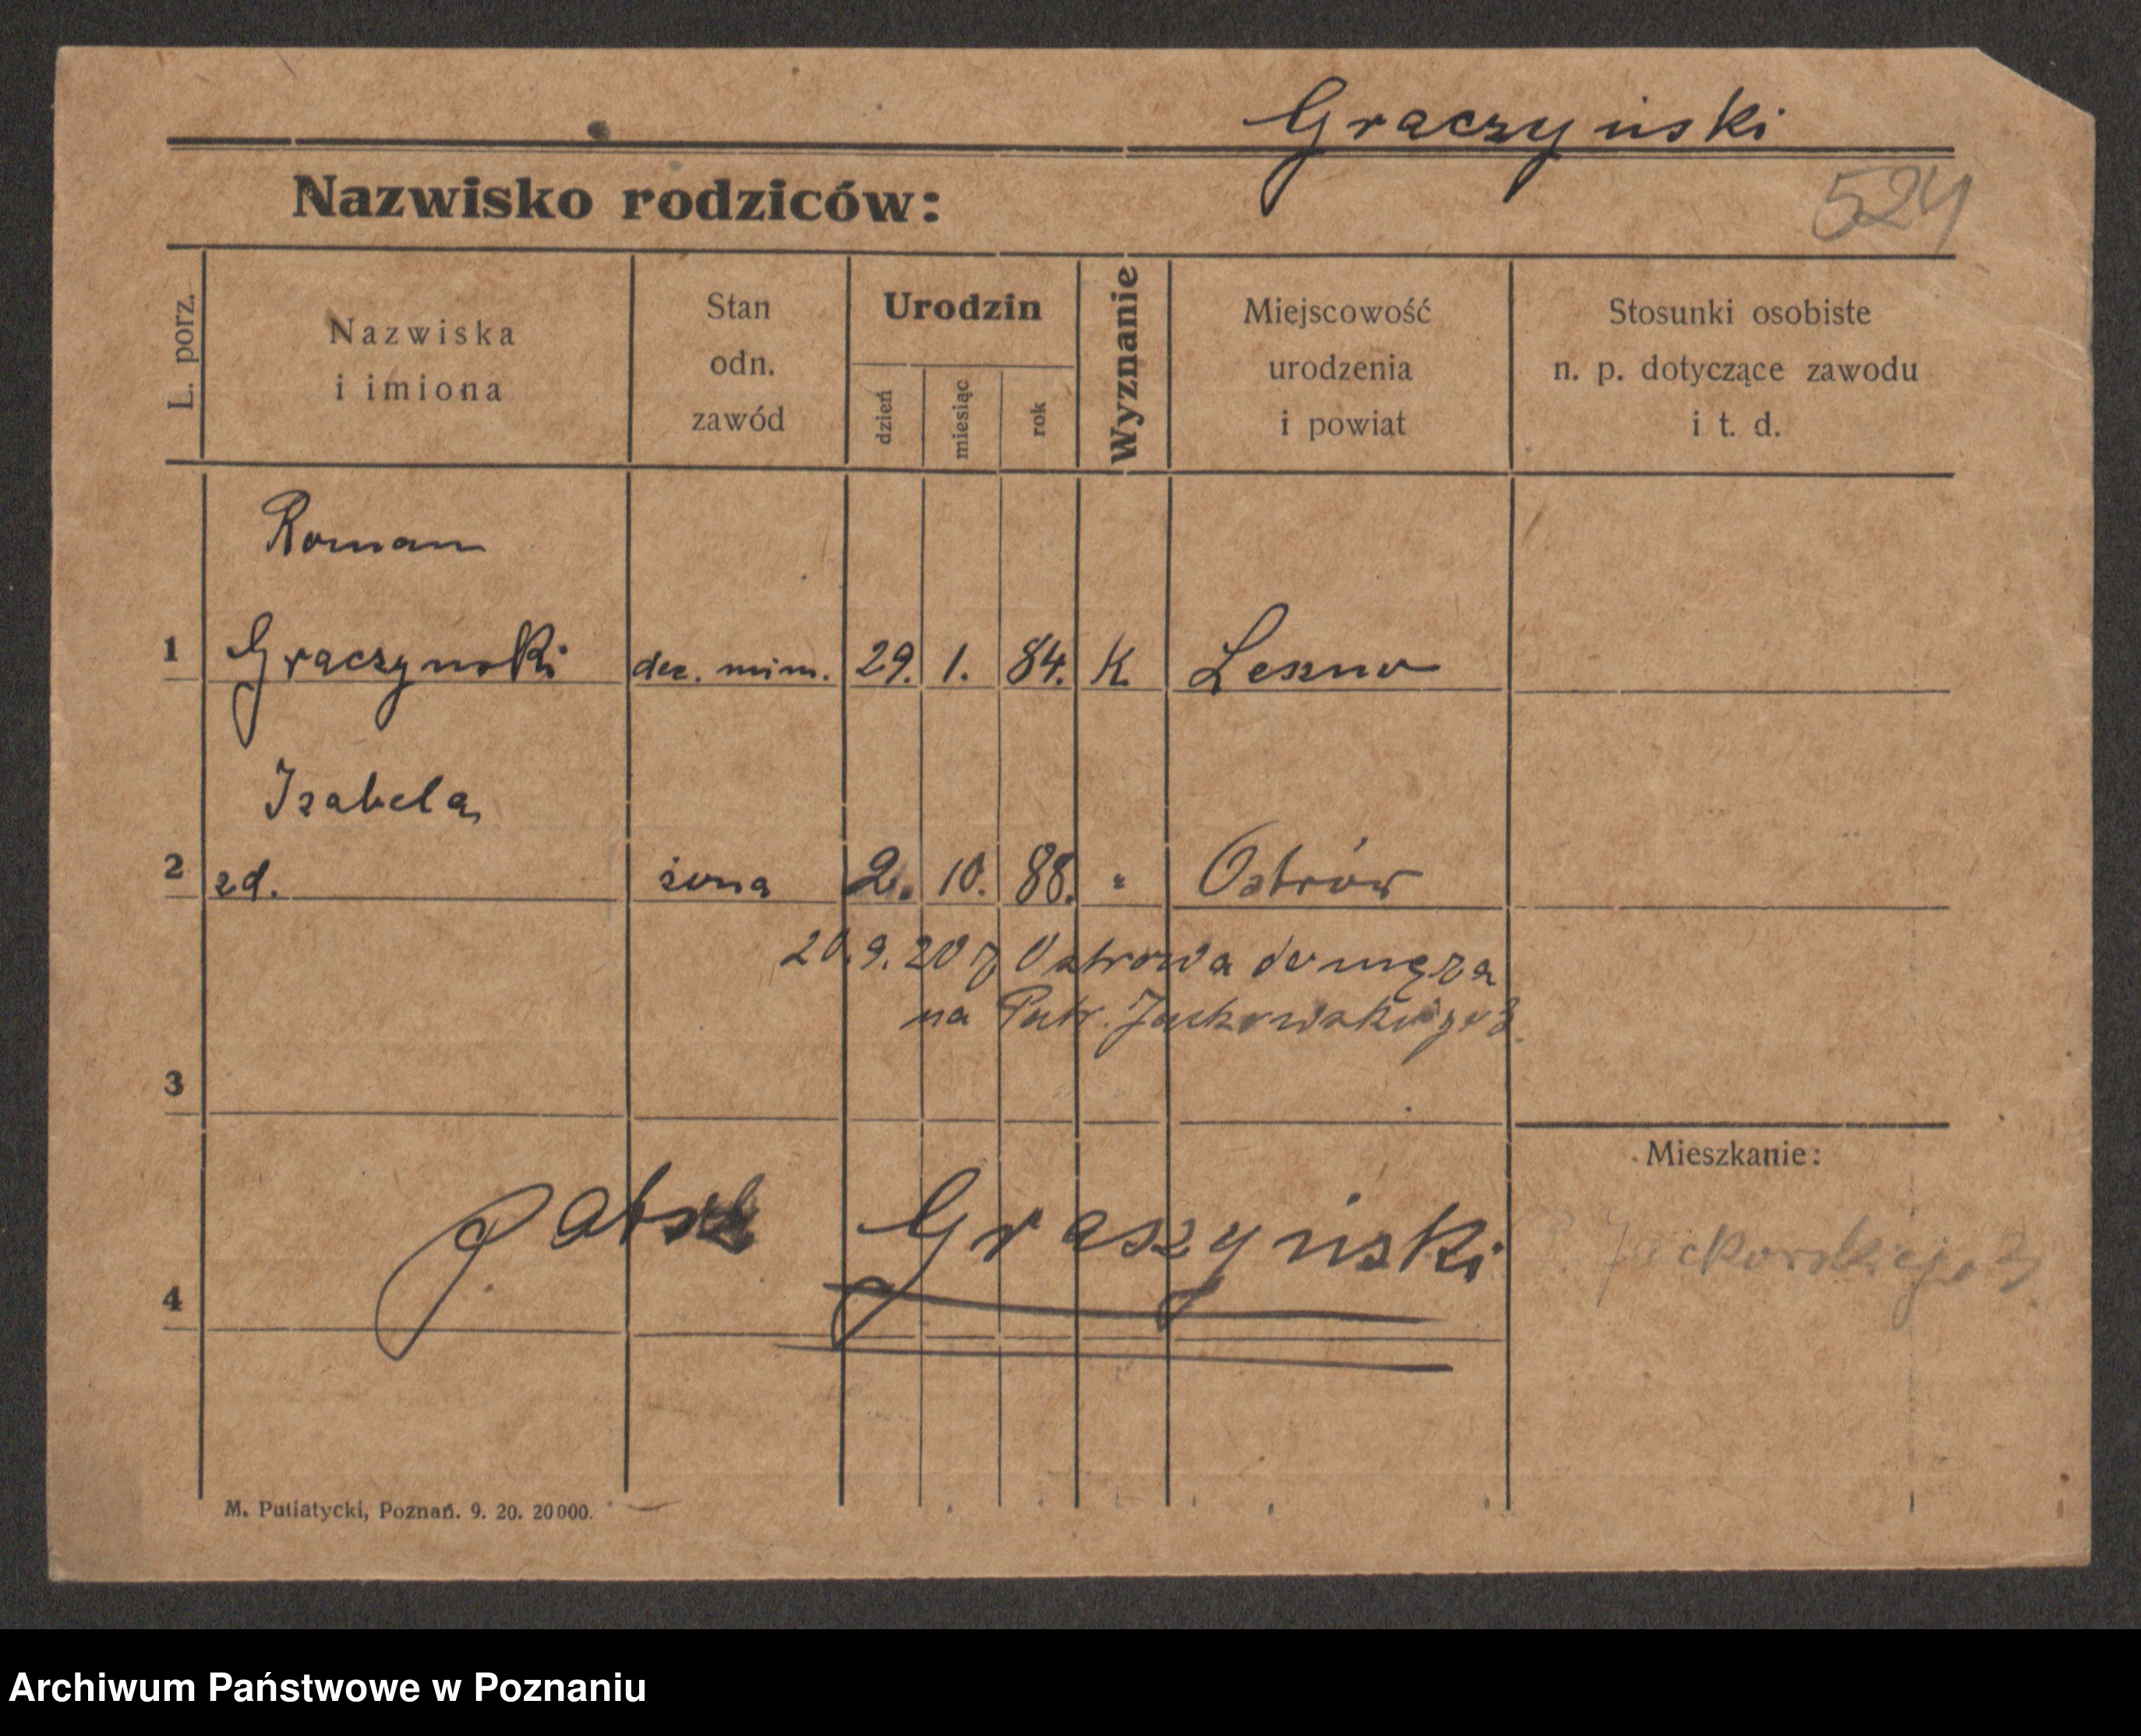 Graczyński
Nazwisko rodziców:
524
L. porz.
Nazwiska
i imiona
Stan
odn.
zawód
Urodzin
dzień
miesiąc
rok
Wyznanie
Miejscowość
urodzenia
i powiat
Stosunki osobiste
n. p. dotyczące zawodu
i t. d.
Roman
1 Graczynski 29. 1. 84. K. Leszno
Izabela
2 zd. żona 2. 10. 88. " Ostrów
20.9.20 z Ostrowa do męża
na Patr. Jackowskiego 3.
3
Mieszkanie:
Graszyński
P. Jackowskiego 3.
4
M. Putiatycki, Poznań. 9. 20. 20000.
Archiwum Państwowe w Poznaniu